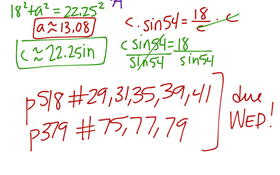 18² + a² = 22.25²
a ≈ 13.08
c ≈ 22.2sin
c · sin54 = 18/c · c
c sin54 = 18
sin54 sin54
p518 #29,31,35,39,41
p379 #75,77,79
due
WED!